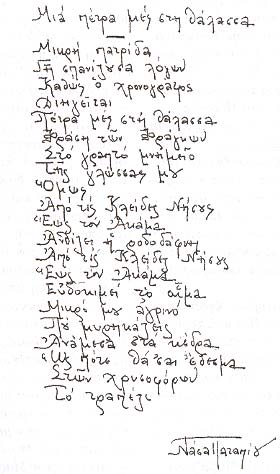 Μιά πέτρα μές στη θάλασσα
Μικρή πατρίδα
Γῆ σπανίζουσα λόγων
Καθώς ὁ χρονογράφος
Διηγεῖται
Πέτρα μές στή θάλασσα
Φράση τῶν Φράγκων
Στό γραπτό μνημεῖο
Τῆς γλώσσας μου
Ὅμως
Ἀπό τίς Κλεῖδες Νήσους
Ἕως τόν Ἀκάμα
Ἀνθίζει ἡ ροδοδάφνη
Ἀπό τίς Κλεῖδες Νήσους
Ἕως τόν Ἀκάμα
Εὐδοκιμεῖ τό αἷμα
Μικρό μου ἀγρινό
Πού μυρηκάζεις
Ἀνάμεσα στά κέδρα
Ὥς πότε θά σαι ἔδεσμα
Στῶν χρυσοφόρων
Τό τραπέζι
Νάσα Παταπίου